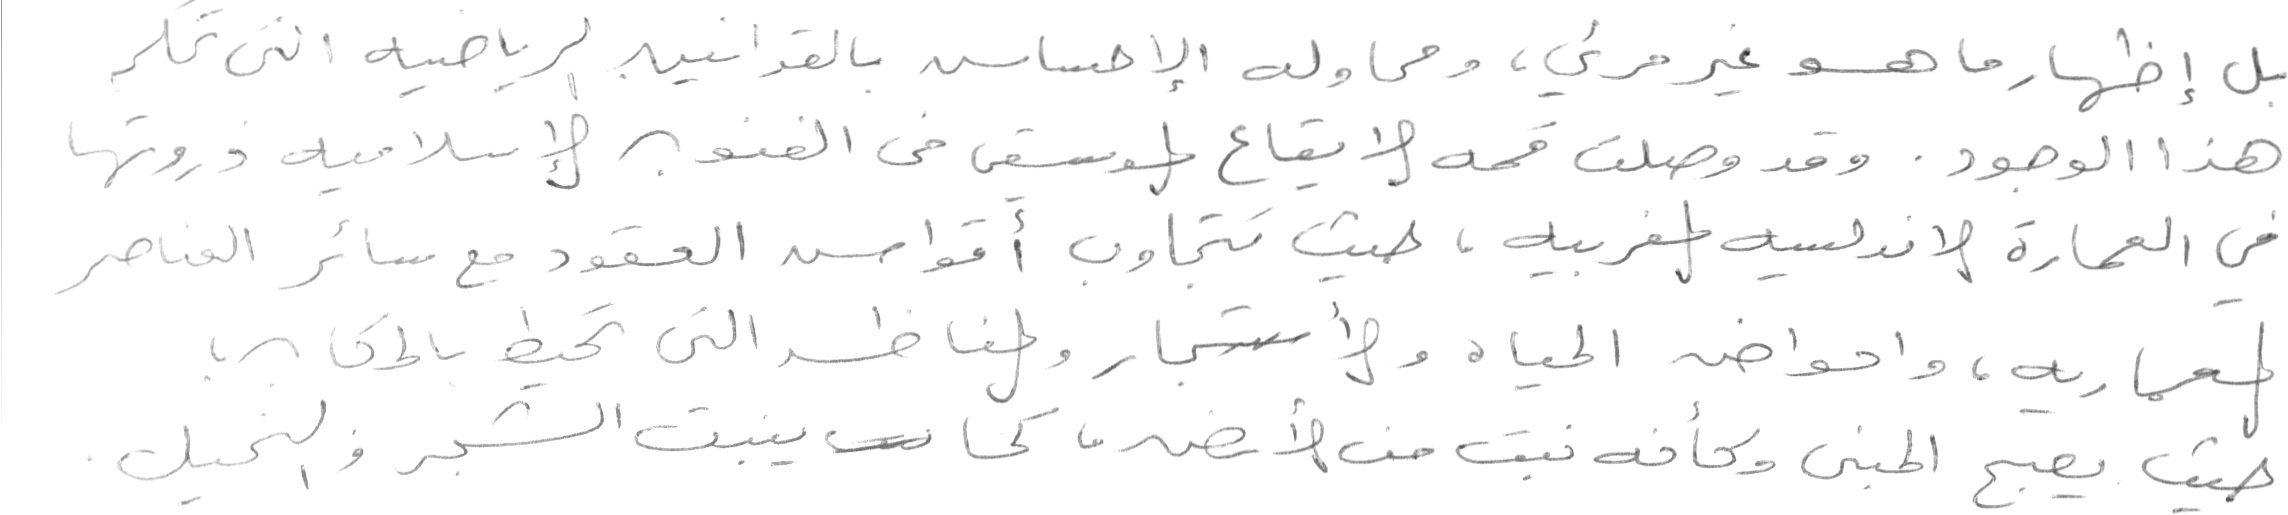 بل إظهار ما هو غير مرئي، ومحاوله الإحساس بالقوانين الرياضيه التى تحكم
هذا الوجود. وقد وصلت قمه الايقاع الموسيقى فى الفنون الإسلاميه ذروتها
فى العمارة الاندلسيه المغربيه، حيث تتجاوب أقواس العقود مع سائر العناصر
المعماريه، واحواض المياه والأشجار والمناظر التى تحيط بالمكان،
حيث يصبح المبنى وكأنه نبت من الأرض، كما ينبت الشجر والنخيل.